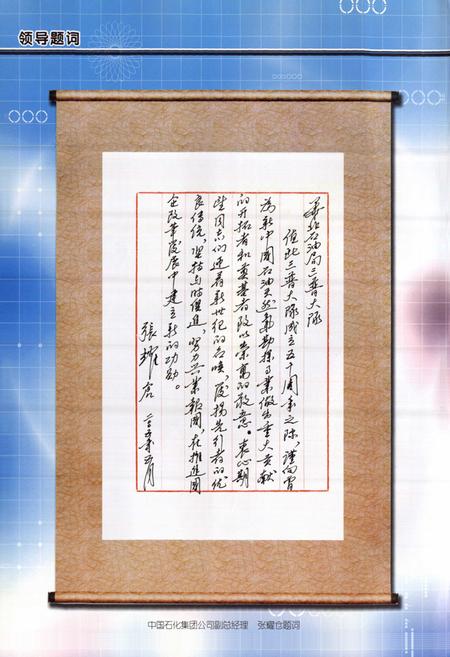 领导题词
华北石油局三普大队
值此三普大队成立五十周年之际，谨向曾
为新中国石油天然气勘探事业做出重大贡献
的开拓者和奠基者致以崇高的敬意。衷心期
望同志们迎着新世纪的召唤，发扬先行者的优
良传统，坚持与时俱进，努力兴业报国，在推进国
企改革发展中建立新的功勋。
張耀倉
二〇〇五年五月
中国石化集团公司副总经理 张耀仓题词